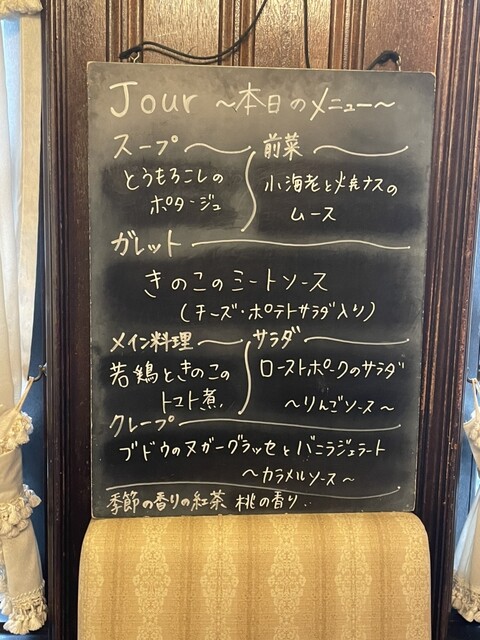 Jour ～本日のメニュー～
スープ
とうもろこしの
ポタージュ
前菜
小海老と焼ナスの
ムース
ガレット
きのこのミートソース
(チーズ・ポテトサラダ入り)
メイン料理
若鶏ときのこの
トマト煮
サラダ
ローストポークのサラダ
～りんごソース～
クレープ
ブドウのヌガーグラッセとバニラジェラート
～カラメルソース～
季節の香りの紅茶 桃の香り